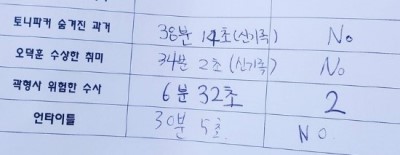 토니파커 숨겨진 과거 38분 14초(신기록) No
오덕훈 수상한 취미 34분 2초(신기록) No
곽형사 위험한 수사 6분 32초 2
언타이틀 30분 5초 No.